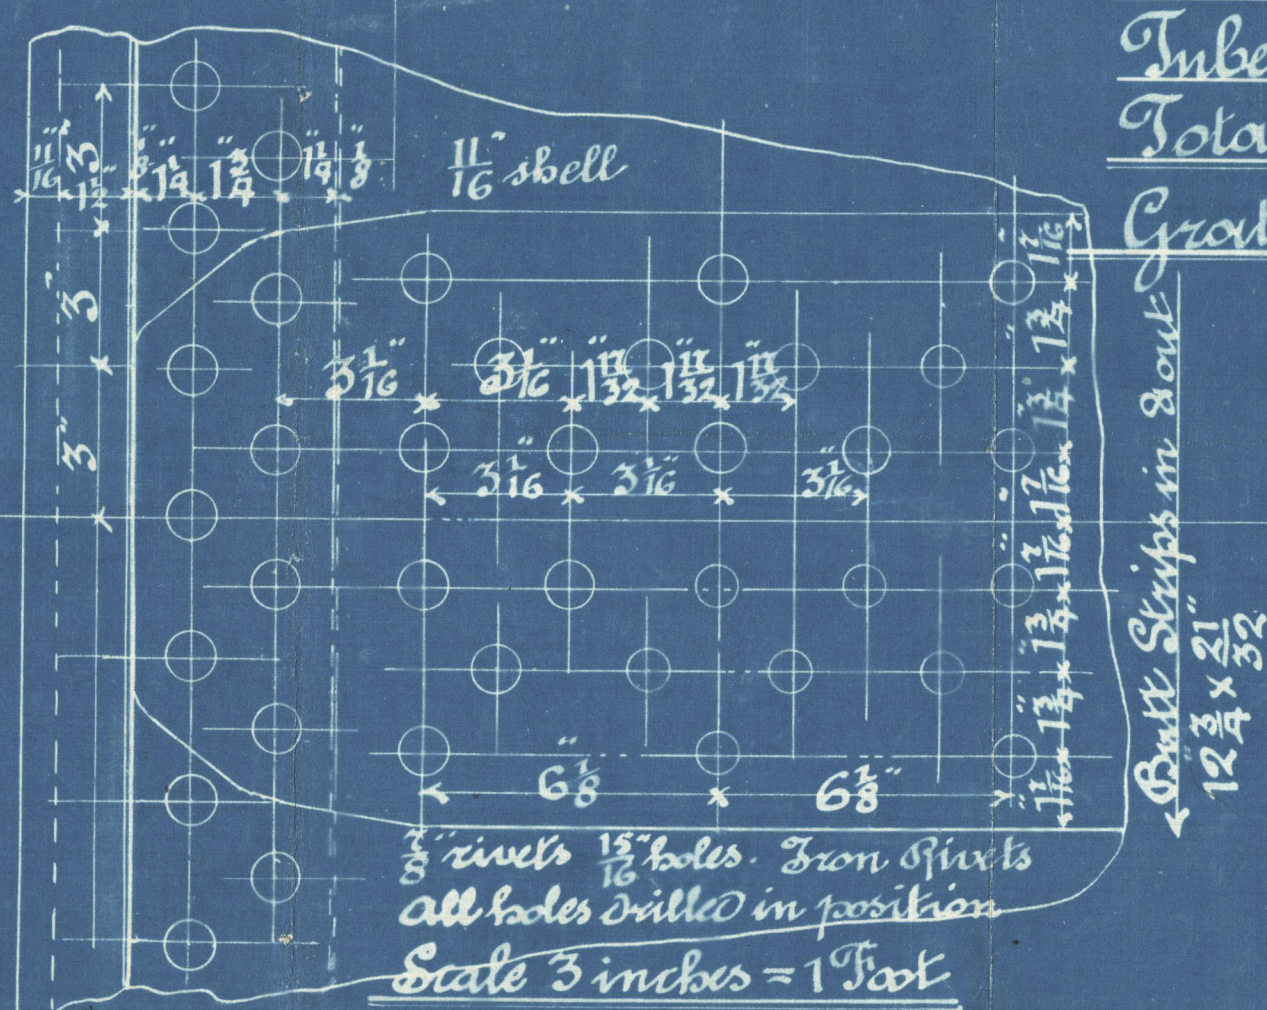 Tube
Tota
Grat
11/16" shell
11/16" 1 1/2" 1/8" 1 1/4" 1 3/4" 1 1/4" 1/8"
3"
3"
3"
3 1/16" 3 1/16" 1 17/32" 1 17/32" 1 17/32"
3 1/16" 3 1/16" 3 1/16"
6 1/8" 6 1/8"
1 7/16"
1 3/4"
1 3/4"
1 7/16"
1 7/16"
1 3/4"
1 3/4"
1 7/16"
Butt Strips in & out
12 3/4" x 21/32"
7/8" rivets 15/16" holes. Iron Rivets
All holes drilled in position
Scale 3 inches = 1 Foot